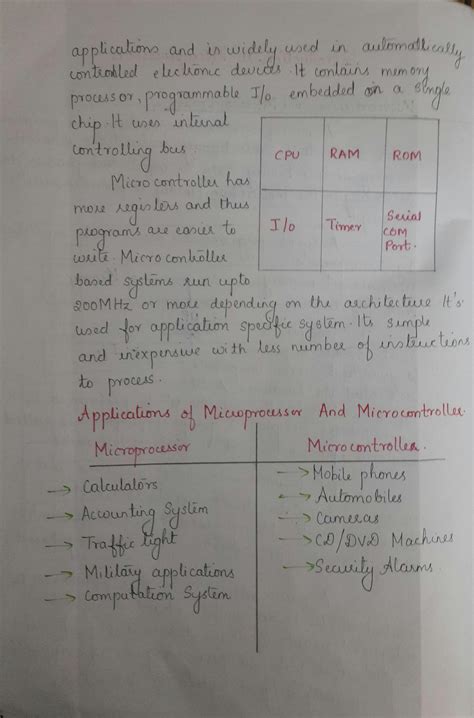 applications and is widely used in automatically
controlled electronic devices. It contains memory
processor, programmable I/o embedded on a single
chip. It uses internal
controlling bus.
CPU RAM ROM
I/o Timer Serial
COM
Port.
Micro controller has
more registers and thus
programs are easier to
write. Micro controller
based systems run upto
200MHz or more depending on the architecture It's
used for application specific system. Its simple
and inexpensive with less number of instructions
to process.
Applications of Microprocessor And Microcontroller
Microprocessor
→ Calculators
→ Accounting System
→ Traffic light
→ Military applications
→ Computation System
Microcontroller.
→ Mobile phones
→ Automobiles
→ Cameras
→ CD/DVD Machines
→ Security Alarms.